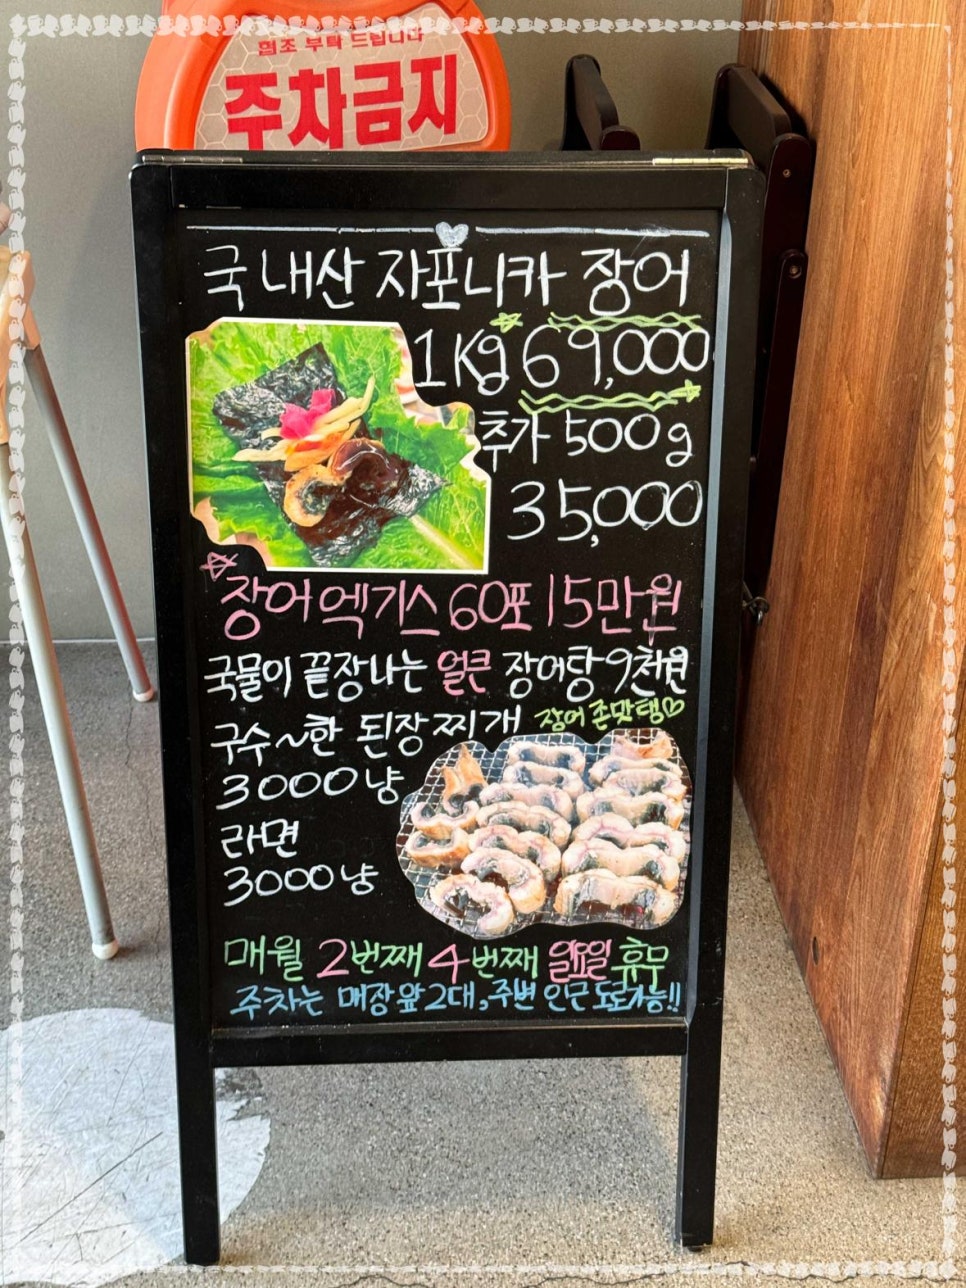 협조 부탁 드립니다
주차금지
국내산 자포니카 장어
1Kg 69,000
추가 500g
35,000
장어엑기스 60포 15만원
국물이 끝장나는 얼큰 장어탕 9천원
구수~한 된장찌개 장어 존맛탱♡
3000냥
라면
3000냥
매월 2번째 4번째 일요일 휴무
주차는 매장앞 2대, 주변 인근도로가능!!